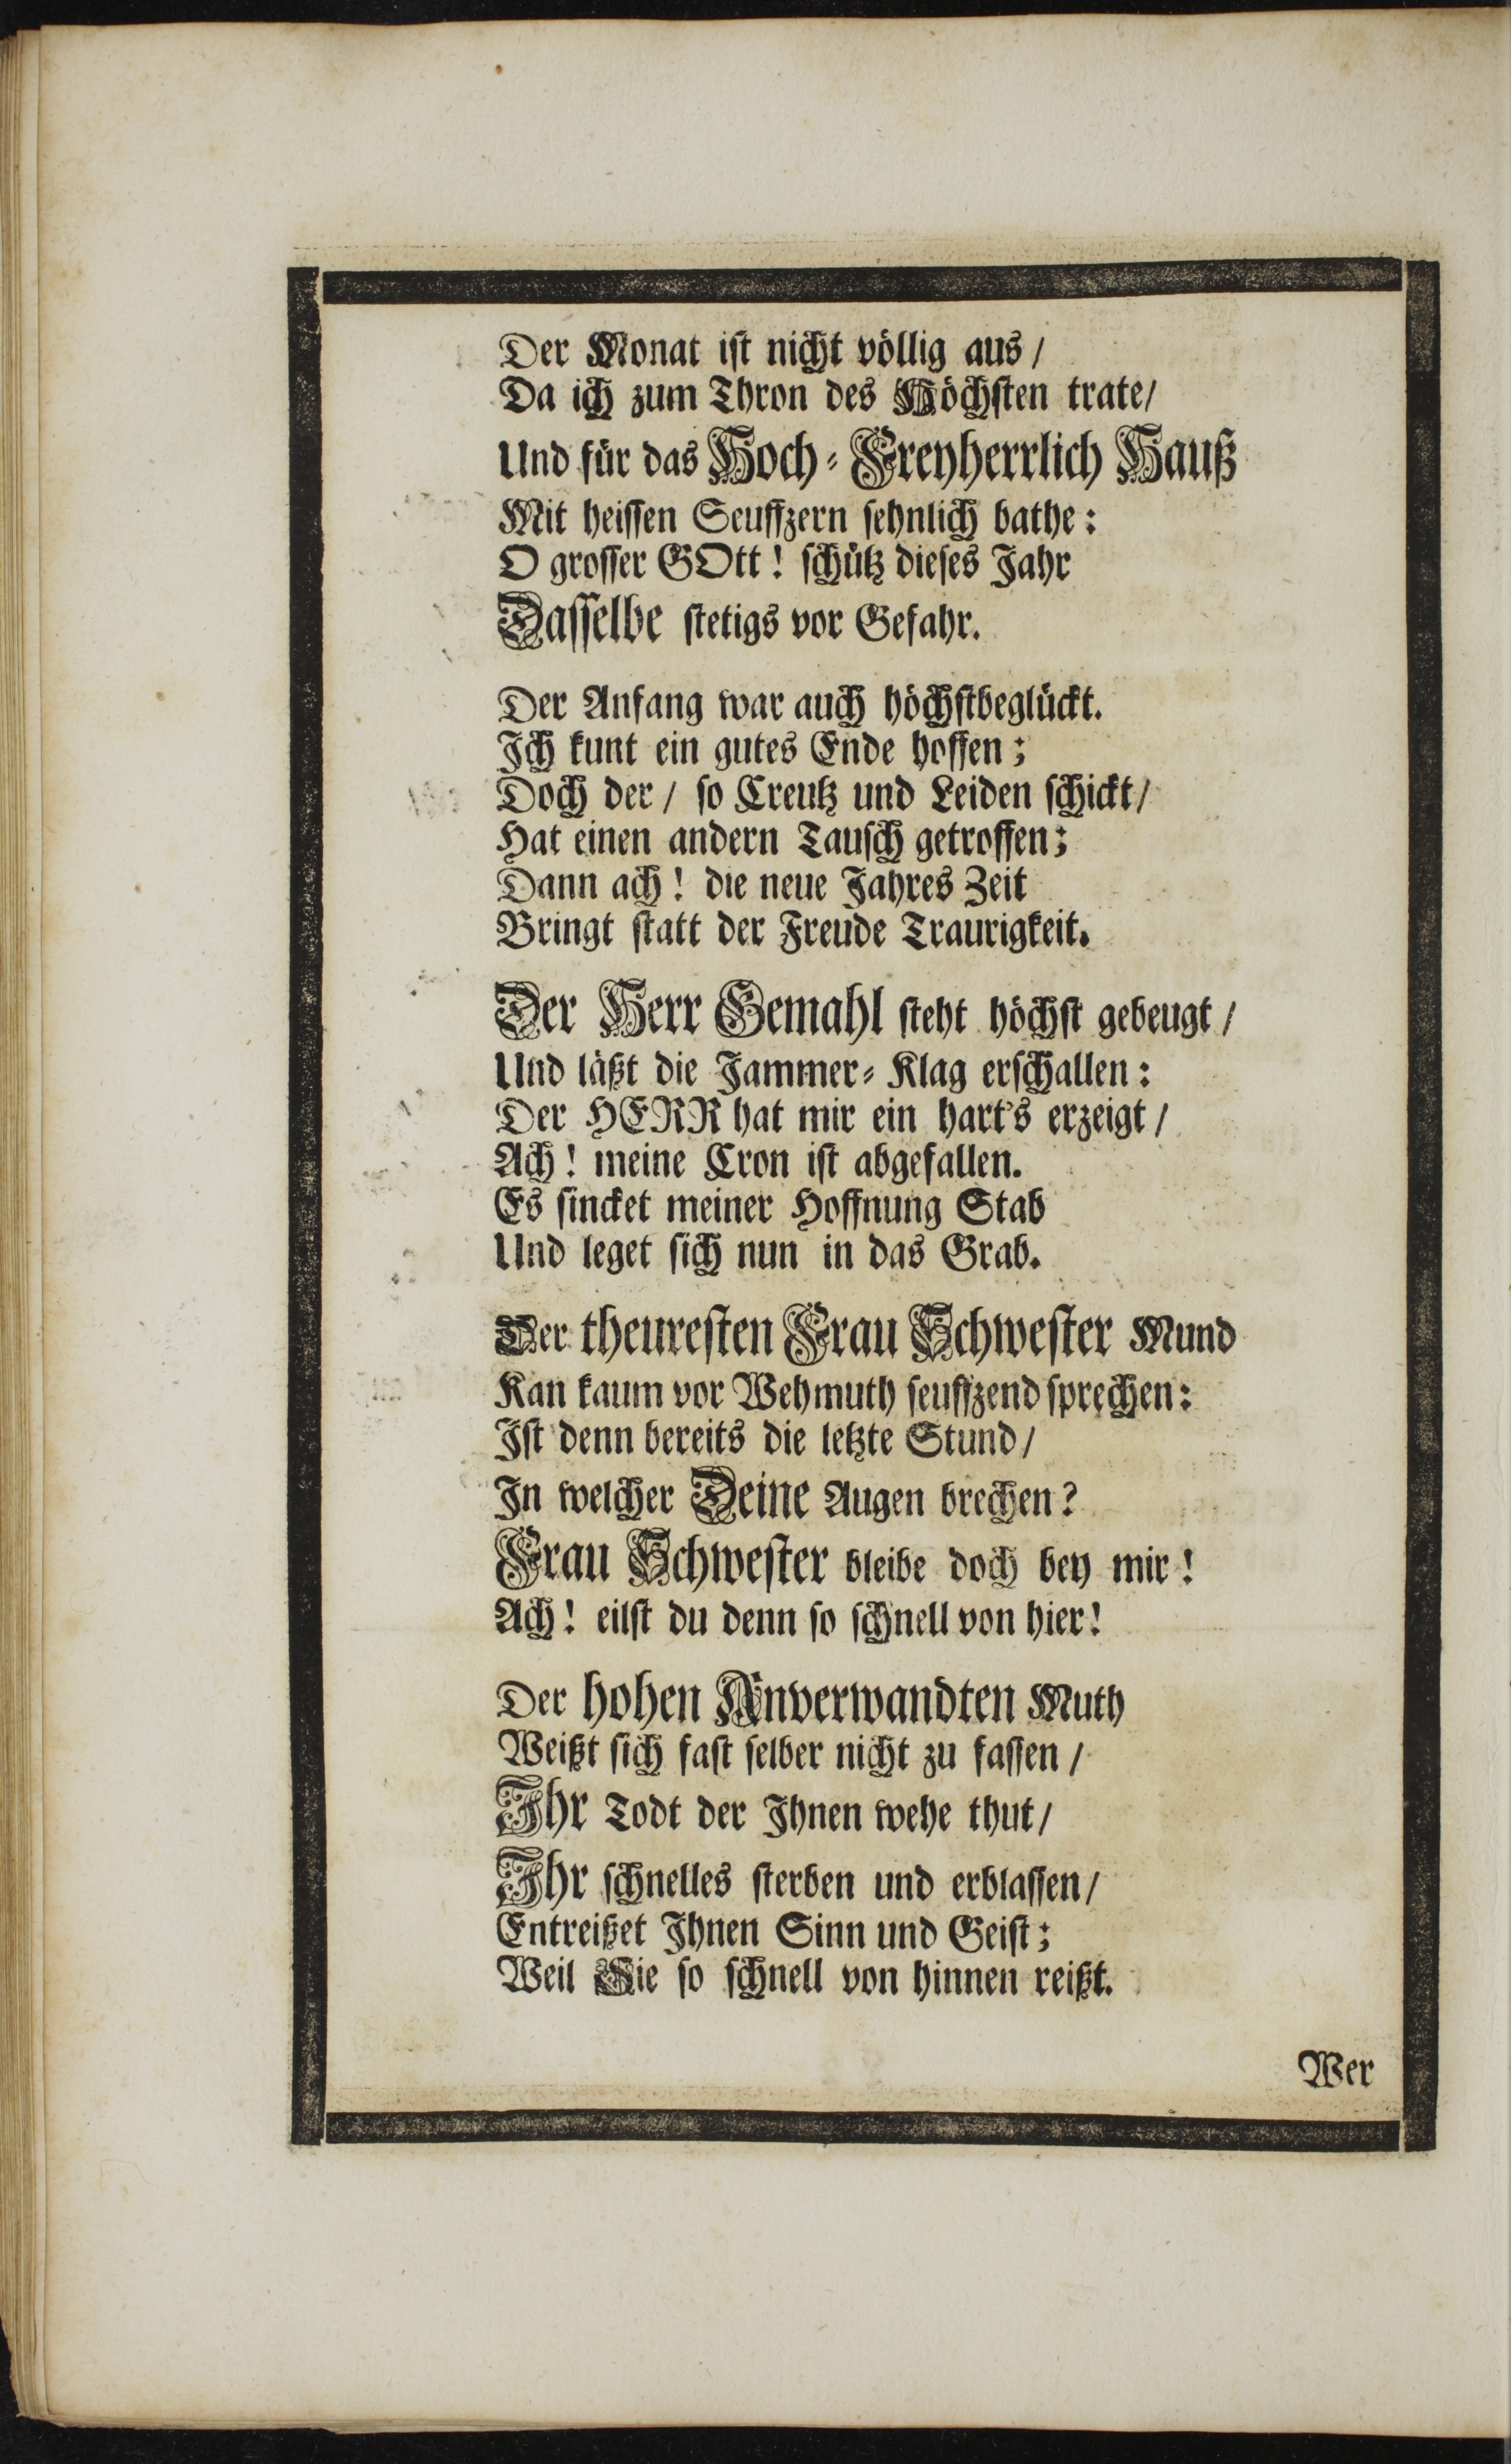 Der Monat ist nicht völlig aus /
Da ich zum Thron des Höchsten trate/
Und für das Hoch-Freyherrlich Hauß
Mit heissen Seuffzern sehnlich bathe:
O grosser GOtt! schütz dieses Jahr
Dasselbe stetigs vor Gefahr.
Der Anfang war auch höchstbeglückt.
Ich kunt ein gutes Ende hoffen;
Doch der / so Creutz und Leiden schickt/
Hat einen andern Tausch getroffen;
Dann ach! die neue Jahres Zeit
Bringt statt der Freude Traurigkeit.
Der Herr Gemahl steht höchst gebeugt /
Und läßt die Jammer-Klag erschallen:
Der HERR hat mir ein hart's erzeigt /
Ach! meine Cron ist abgefallen.
Es sincket meiner Hoffnung Stab
Und leget sich nun in das Grab.
Der theuresten Frau Schwester Mund
Kan kaum vor Wehmuth seuffzend sprechen:
Ist denn bereits die letzte Stund/
In welcher Deine Augen brechen?
Frau Schwester bleibe doch bey mir!
Ach! eilst du denn so schnell von hier!
Der hohen Anverwandten Muth
Weißt sich fast selber nicht zu fassen /
Ihr Todt der Ihnen wehe thut/
Ihr schnelles sterben und erblassen/
Entreißet Ihnen Sinn und Geist;
Weil Sie so schnell von hinnen reißt.
Wer